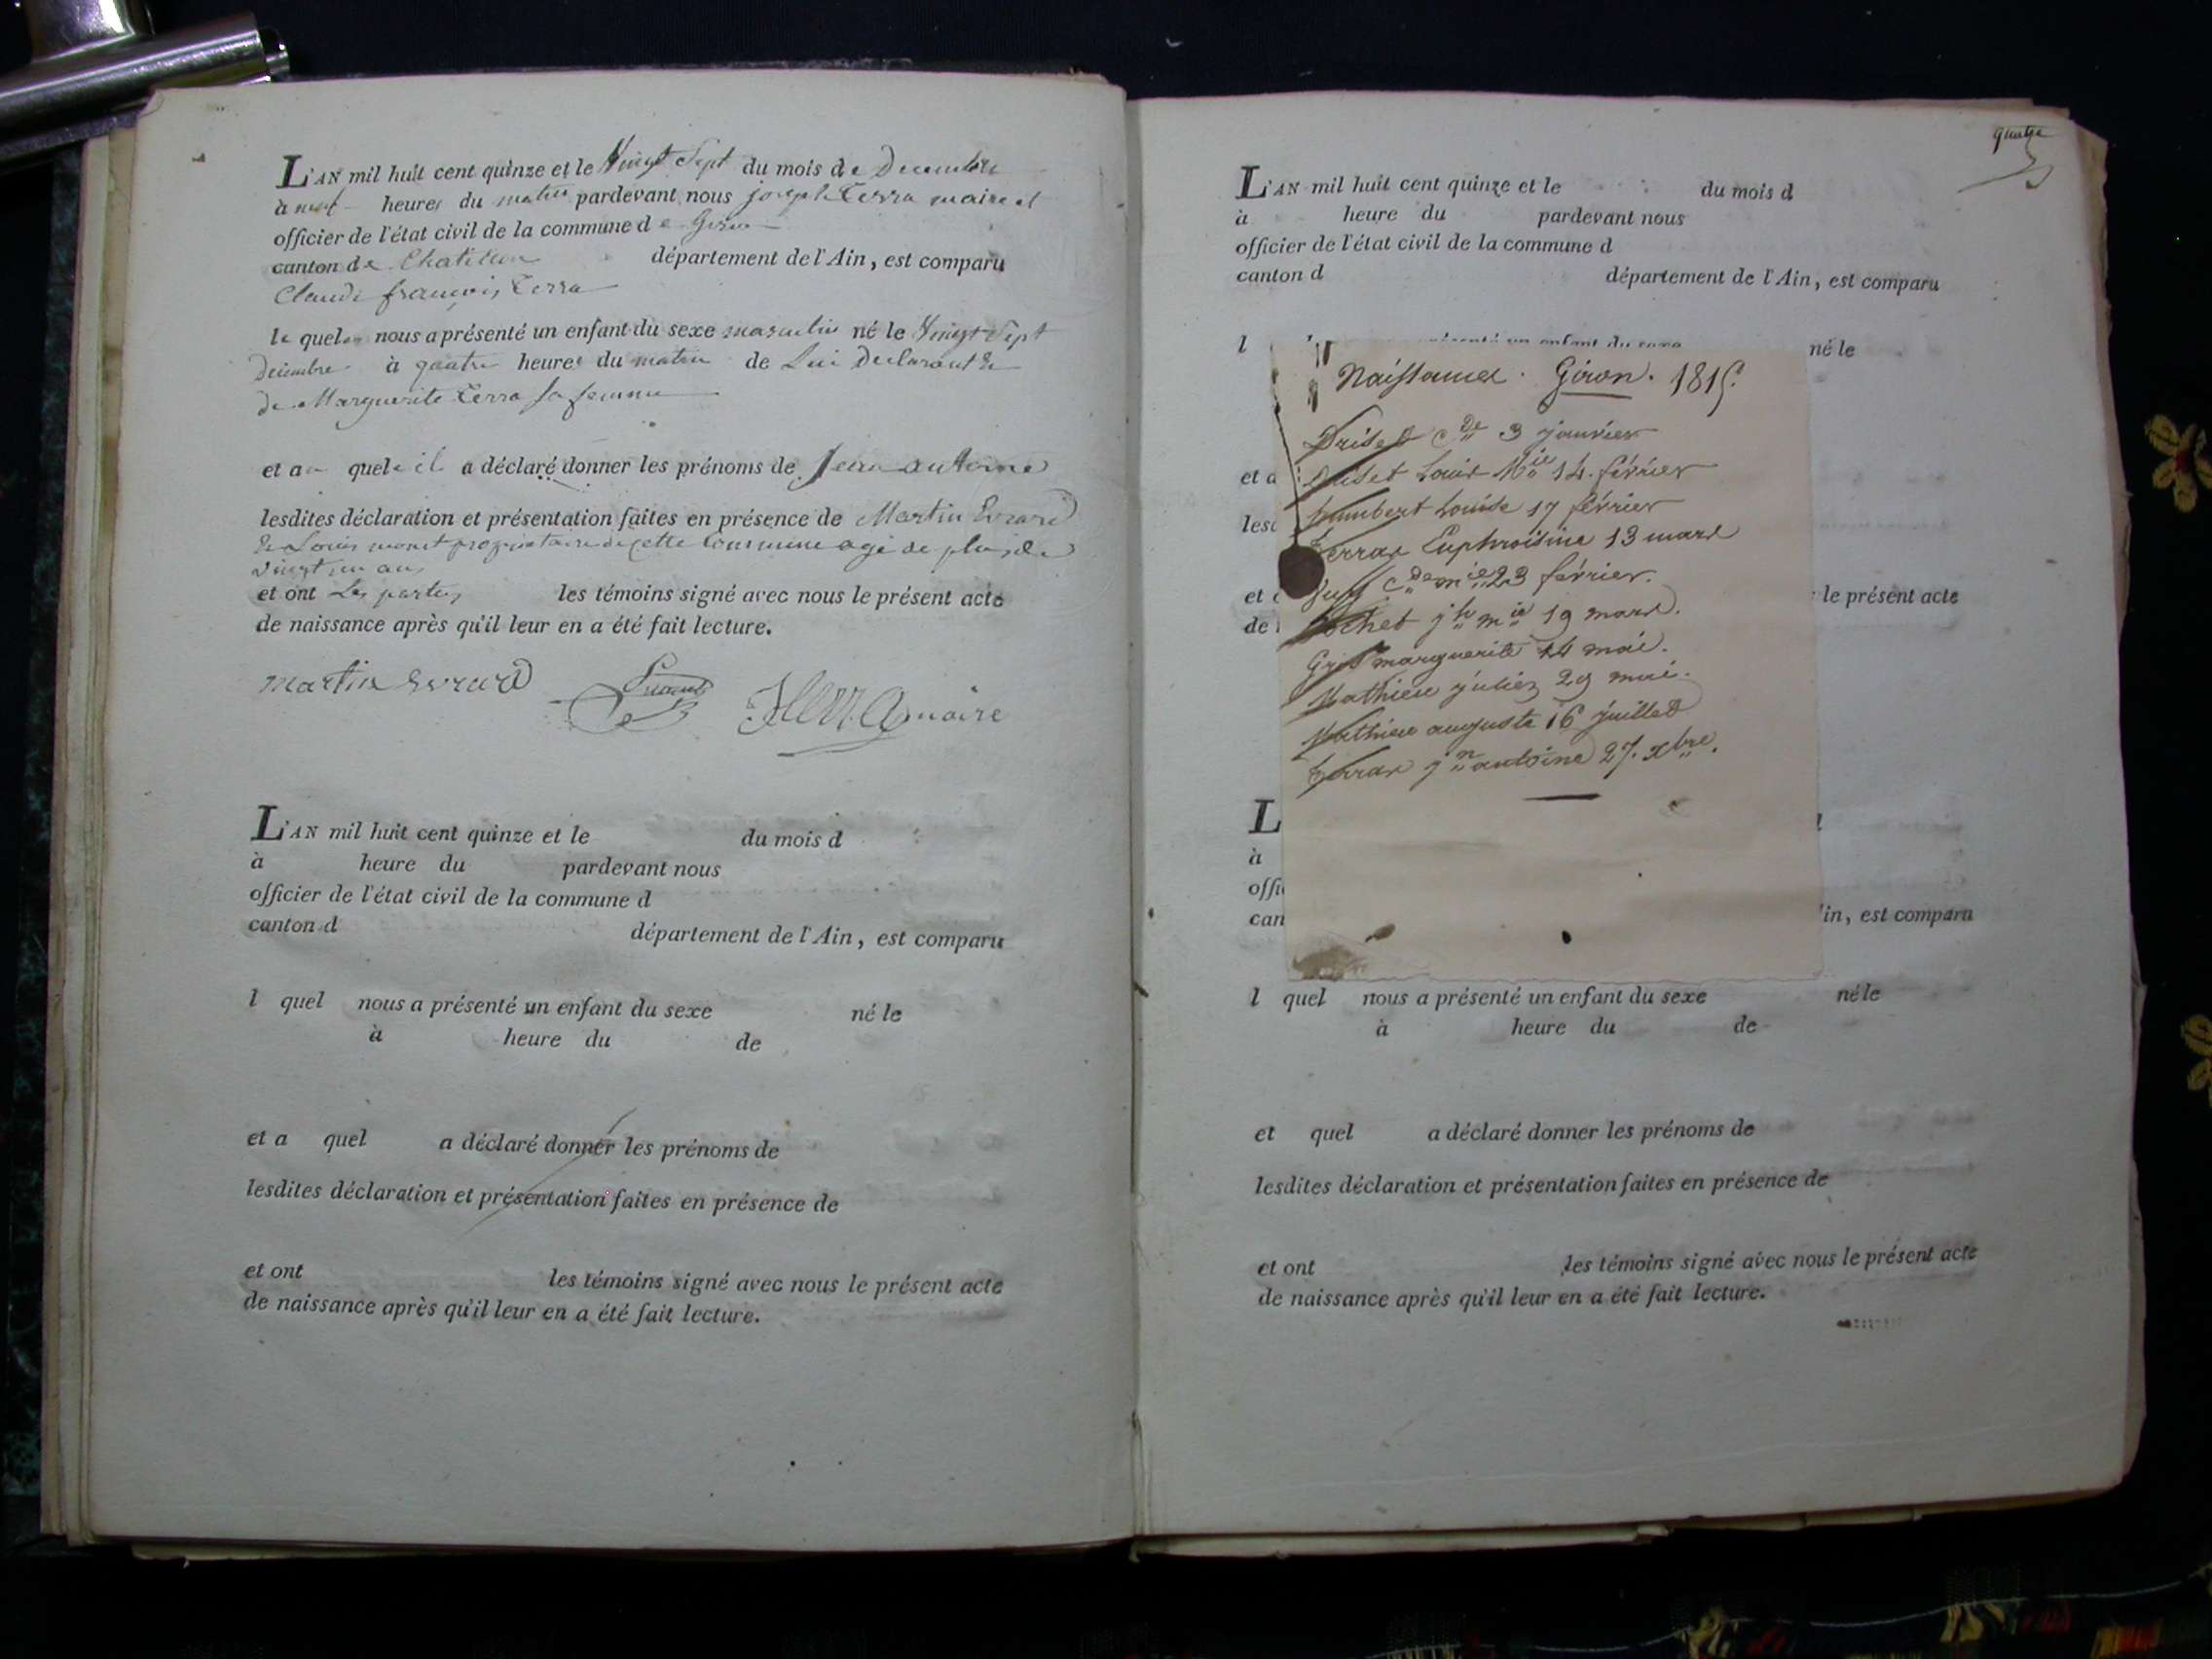 L'AN mil huit cent quinze et le Vingt Sept du mois de Decembre
à neuf heures du matin pardevant nous joseph Terra maire et
officier de l'état civil de la commune de Giron
canton de Chatillon département de l'Ain, est comparu
Claude françois Terra
le quel nous a présenté un enfant du sexe masculin né le Vingt Sept
Decembre à quatre heures du matin de Lui Declarant &
de Marguerite Terra sa femme
et au quel il a déclaré donner les prénoms de Jean antoine
lesdites déclaration et présentation faites en présence de Martin Evrard
& Louis monet propriétaire de cette Commune agé de plus de
vingt un ans
et ont Les parties les témoins signé avec nous le présent acte
de naissance après qu'il leur en a été fait lecture.
martin evrard
Terra maire
L'AN mil huit cent quinze et le du mois d
à heure du pardevant nous
officier de l'état civil de la commune d
canton d département de l'Ain, est comparu
l quel nous a présenté un enfant du sexe né le
à heure du de
et a quel a déclaré donner les prénoms de
lesdites déclaration et présentation faites en présence de
et ont les témoins signé avec nous le présent acte
de naissance après qu'il leur en a été fait lecture.
quatre
L'AN mil huit cent quinze et le du mois d
à heure du pardevant nous
officier de l'état civil de la commune d
canton d département de l'Ain, est comparu
l né le
Naissances. Giron. 1815.
Cde 3 janvier
et a Louis Mie 14. février
lesd humbert Louise 17 février
Terrax Euphroisine 13 mars
et Cde mie 23 février. le présent acte
de jh mie 19 mars.
Gros marguerite 14 mai.
Mathieu julien 29 mai.
Mathieu auguste 16 juillet
Terrax jn antoine 27. xbre.
L
à
offi
can in, est comparu
l quel nous a présenté un enfant du sexe né le
à heure du de
et quel a déclaré donner les prénoms de
lesdites déclaration et présentation faites en présence de
et ont les témoins signé avec nous le présent acte
de naissance après qu'il leur en a été fait lecture.